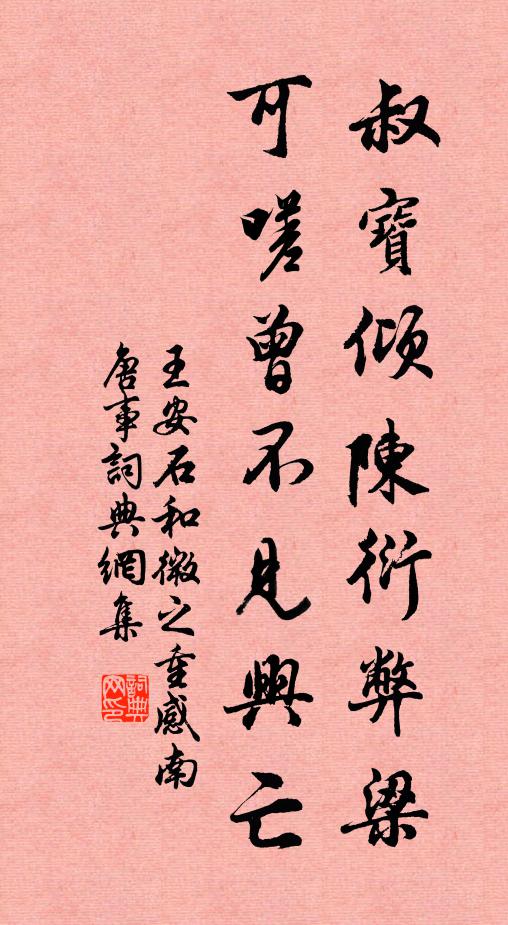 叔寶傾陳衍弊梁
可嗟曾不見興亡
王安石和微之重感南
唐事詞典網集
詞典網印